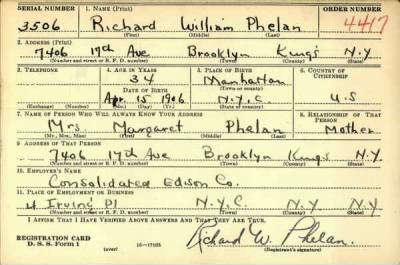 SERIAL NUMBER 1. NAME (Print) ORDER NUMBER
3506 Richard William Phelan 4417
(First) (Middle) (Last)
2. ADDRESS (Print)
7406 17th Ave Brooklyn Kings N.Y
(Number and street or R. F. D. number) (Town) (County) (State)
3. TELEPHONE 4. AGE IN YEARS 5. PLACE OF BIRTH 6. COUNTRY OF CITIZENSHIP
34 Manhattan
DATE OF BIRTH (Town or county)
Apr. 15 1906 N.Y.C. U.S
(Exchange) (Number) (Mo.) (Day) (Yr.) (State or country)
7. NAME OF PERSON WHO WILL ALWAYS KNOW YOUR ADDRESS 8. RELATIONSHIP OF THAT PERSON
Mrs Margaret Phelan Mother
(Mr., Mrs., Miss) (First) (Middle) (Last)
9. ADDRESS OF THAT PERSON
7406 17th Ave Brooklyn Kings N.Y.
(Number and street or R. F. D. number) (Town) (County) (State)
10. EMPLOYER'S NAME
Consolidated Edison Co.
11. PLACE OF EMPLOYMENT OR BUSINESS
4 Irving Pl N.Y.C N.Y N.Y
(Number and street or R. F. D. number) (Town) (County) (State)
I AFFIRM THAT I HAVE VERIFIED ABOVE ANSWERS AND THAT THEY ARE TRUE.
REGISTRATION CARD
D. S. S. Form 1 (over) 16—17105
Richard W. Phelan.
(Registrant's signature)